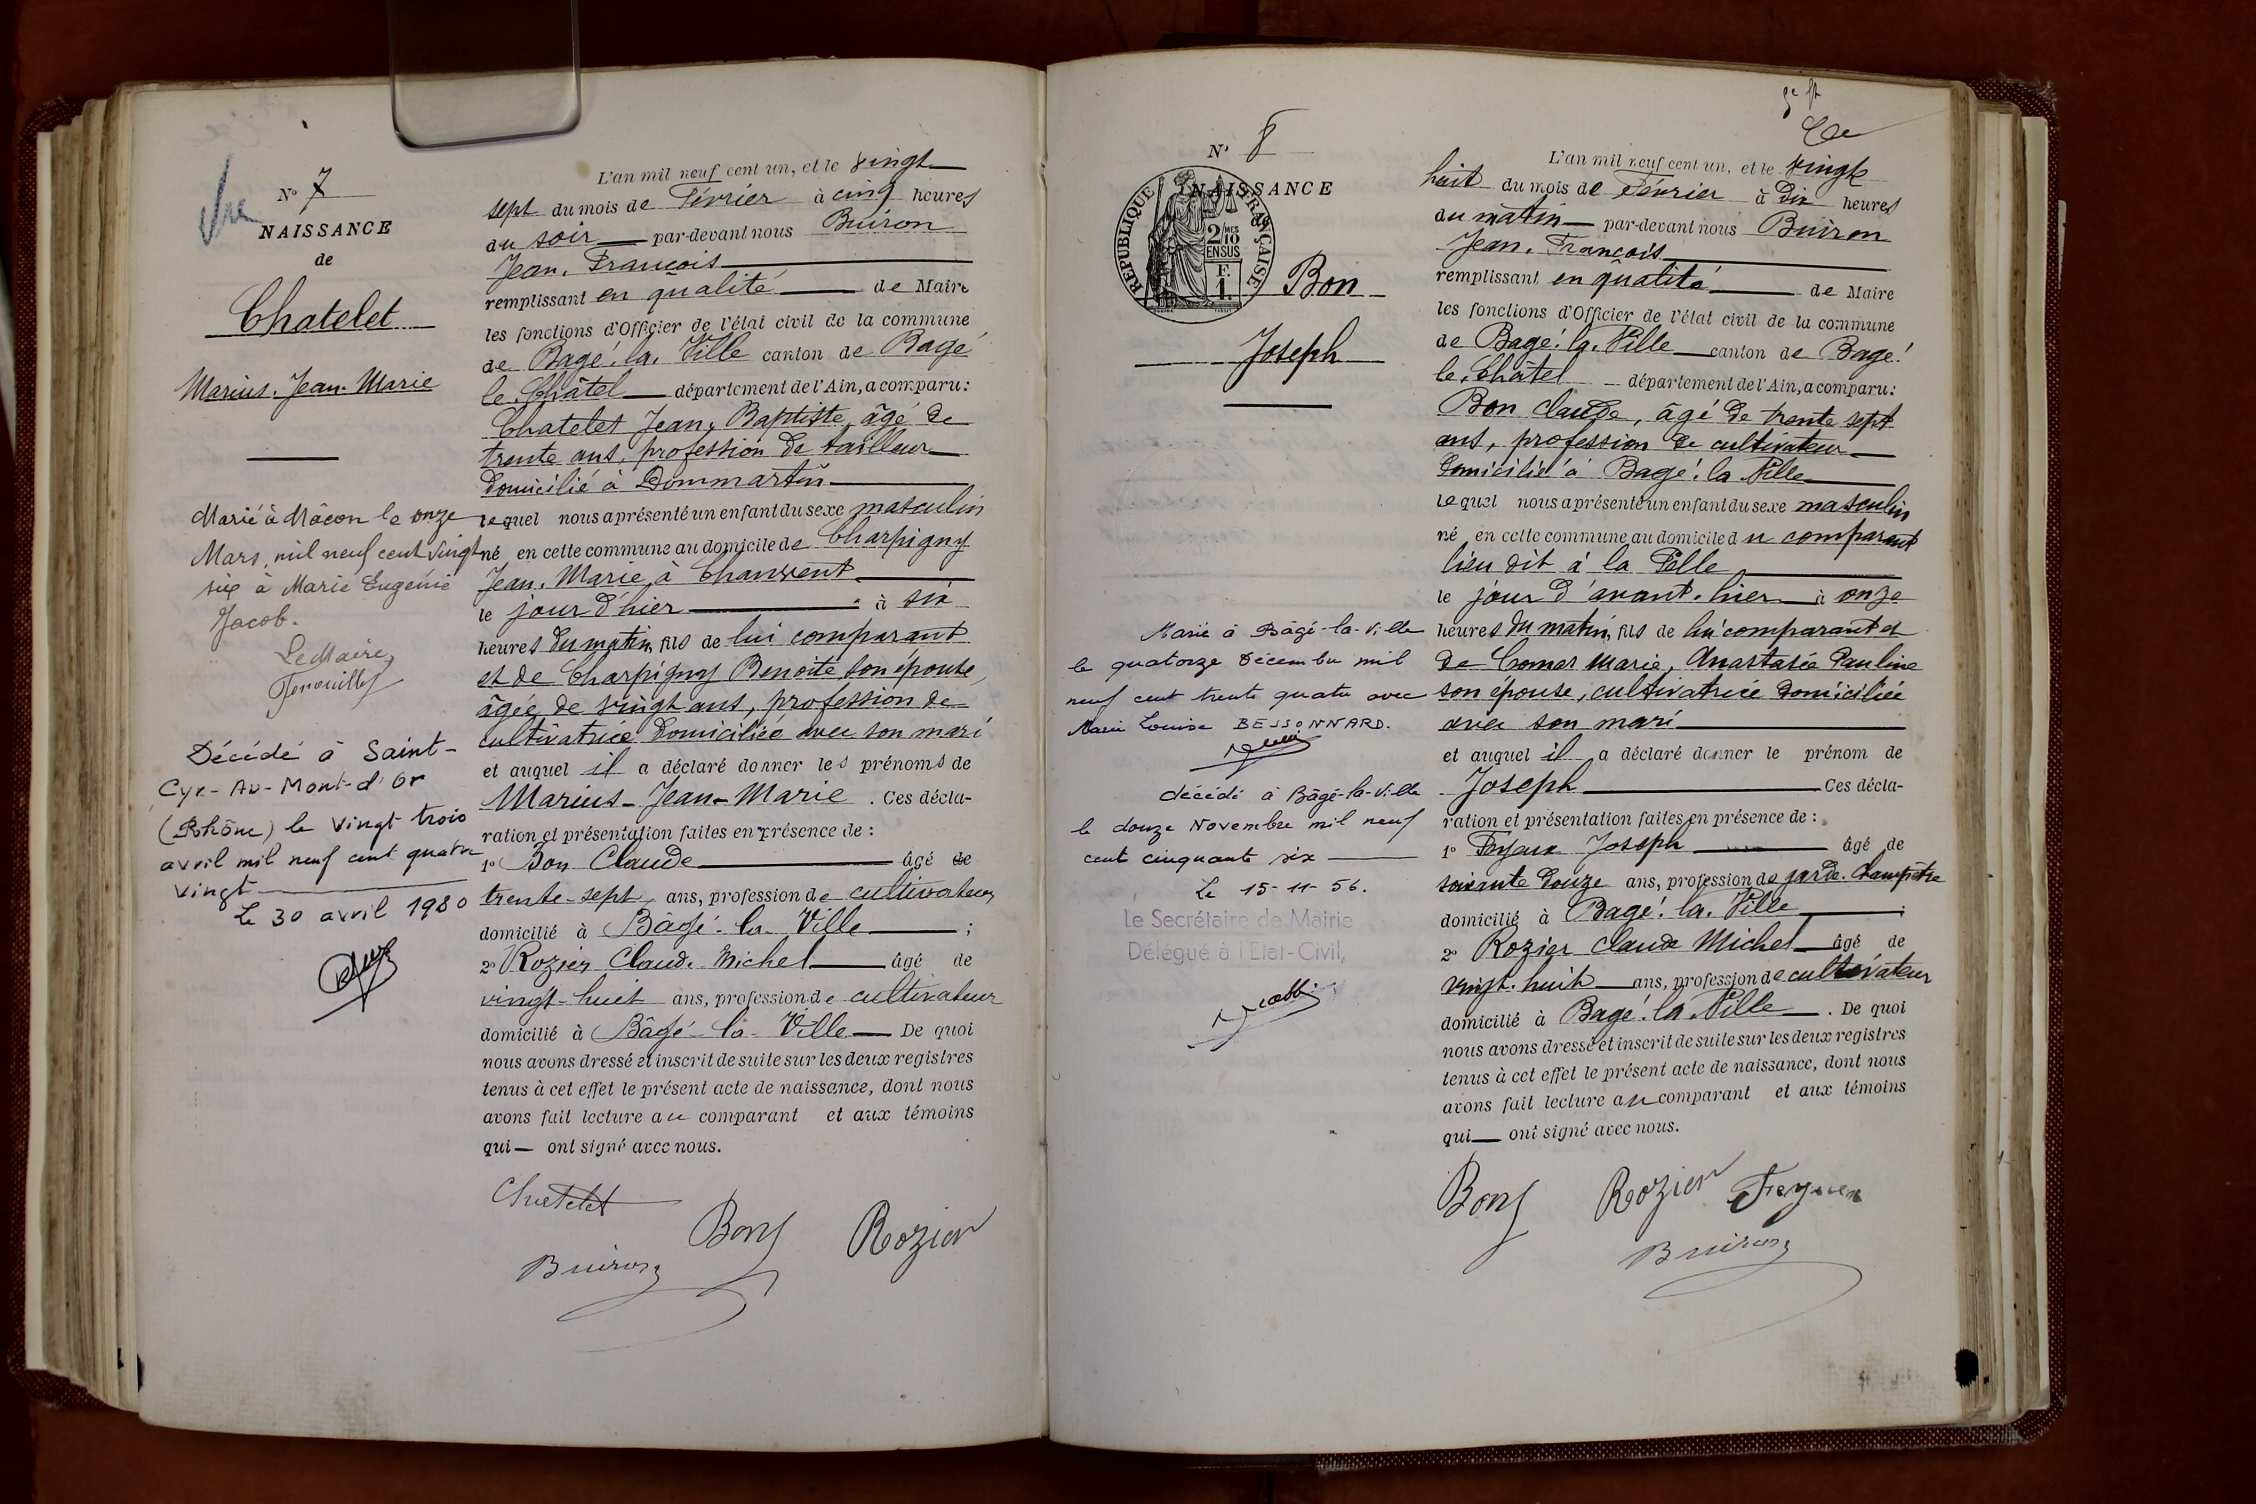 N° 7
NAISSANCE
de
Chatelet
Marius. Jean. Marie
Marié à Mâcon le onze
Mars, mil neuf cent vingt
six à Marie Eugénie
Jacob.
Le Maire,
Décédé à Saint-
Cyr-Au-Mont-d'Or
(Rhône) le vingt trois
avril mil neuf cent quatre
vingt
Le 30 avril 1980
L'an mil neuf cent un, et le vingt
sept du mois de Février à cinq heures
du soir par-devant nous Buiron
Jean. François
remplissant en qualité de Maire
les fonctions d'Officier de l'état civil de la commune
de Bagé. la. Ville canton de Bagé
le. Châtel département de l'Ain, a comparu:
Chatelet Jean, Baptiste, âgé de
trente ans, profession de tailleur
domicilié à Dommartin
lequel nous a présenté un enfant du sexe masculin
né en cette commune au domicile de Charpigny
Jean. Marie, à Chanvent
le jour d'hier à six
heures du matin, fils de lui comparant
et de Charpigny Benoite son épouse,
âgée de vingt ans, profession de
cultivatrice domiciliée avec son mari
et auquel il a déclaré donner les prénoms de
Marius-Jean-Marie. Ces décla-
ration et présentation faites en présence de:
1° Bon Claude âgé de
trente-sept ans, profession de cultivateur
domicilié à Bâgé-la-Ville ;
2° Rozier Claude Michel âgé de
vingt-huit ans, profession de cultivateur
domicilié à Bâgé-la-Ville De quoi
nous avons dressé et inscrit de suite sur les deux registres
tenus à cet effet le présent acte de naissance, dont nous
avons fait lecture au comparant et aux témoins
qui ont signé avec nous.
Chatelet
Bon
Rozier
Buiron
N° 8
NAISSANCE
RÉPUBLIQUE FRANÇAISE
2/10 MES
EN SUS
F.
1.
Bon
Joseph
Marié à Bâgé-la-Ville
le quatorze Décembre mil
neuf cent trente quatre avec
Marie Louise BESSONNARD.
décédé à Bâgé-la-Ville
le douze Novembre mil neuf
cent cinquante six
Le 15-11-56.
Le Secrétaire de Mairie
Délégué à l'Etat-Civil,
L'an mil neuf cent un, et le vingt
huit du mois de Février à dix heures
du matin par-devant nous Buiron
Jean. François
remplissant en qualité de Maire
les fonctions d'Officier de l'état civil de la commune
de Bagé. la. Ville canton de Bagé.
le. Châtel département de l'Ain, a comparu:
Bon Claude, âgé de trente sept
ans, profession de cultivateur
domicilié à Bagé. la Ville
lequel nous a présenté un enfant du sexe masculin
né en cette commune au domicile du comparant
lieu dit à la
le jour d'avant. hier à onze
heures du matin, fils de lui comparant et
de Comer Marie, Anastasie Pauline
son épouse, cultivatrice domiciliée
avec son mari
et auquel il a déclaré donner le prénom de
Joseph Ces décla-
ration et présentation faites en présence de:
1° Feyeux Joseph âgé de
soixante douze ans, profession de garde. champêtre
domicilié à Bagé. la. Ville ;
2° Rozier Claude Michel âgé de
vingt. huit ans, profession de cultivateur
domicilié à Bagé. la Ville. De quoi
nous avons dressé et inscrit de suite sur les deux registres
tenus à cet effet le présent acte de naissance, dont nous
avons fait lecture au comparant et aux témoins
qui ont signé avec nous.
Bon
Rozier
Buiron